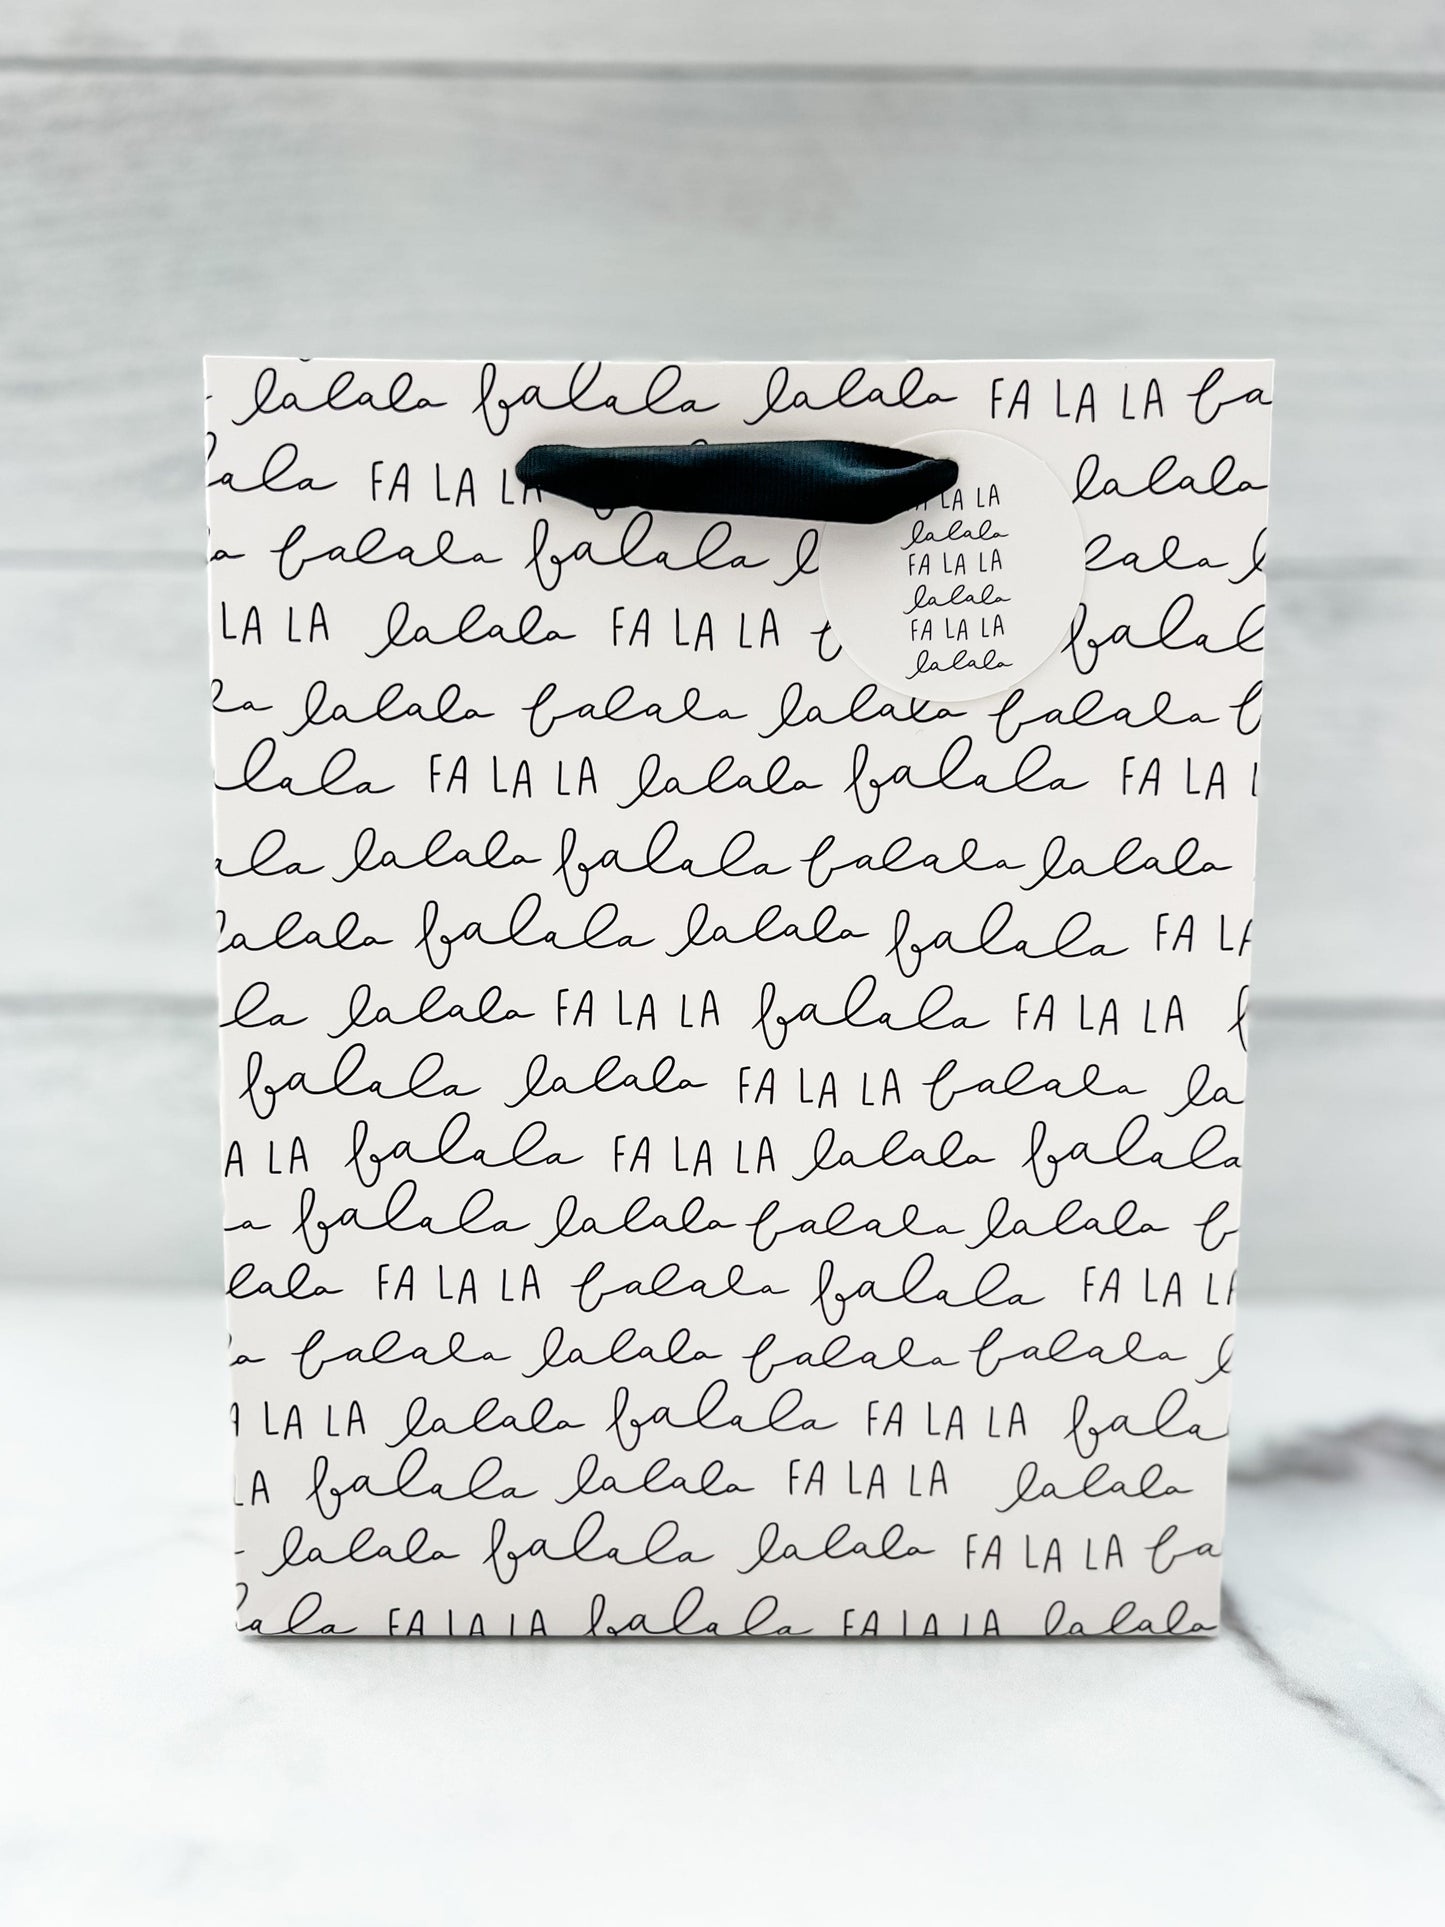 lalala falalala lalala FA LA LA fa
ala FA LA LA lalala
a falalala falalala
LA LA lalala FA LA LA falala
la lalala falalala lalala falalala
lala FA LA LA lalala falalala FA LA
ala lalala falalala falalala lalala
alala falalala lalala falalala FA LA
la lalala FA LA LA falalala FA LA LA
falalala lalala FA LA LA falalala la
A LA falalala FA LA LA lalala falalala
a falalala lalala falalala lalala
lala FA LA LA falalala falalala FA LA LA
a falalala lalala falalala falalala
A LA LA lalala falalala FA LA LA fala
LA falalala lalala FA LA LA lalala
lalala falalala lalala FA LA LA fa
ala FA LA LA falalala FA LA LA lalala
LA LA
lalala
FA LA LA
lalala
FA LA LA
lalala